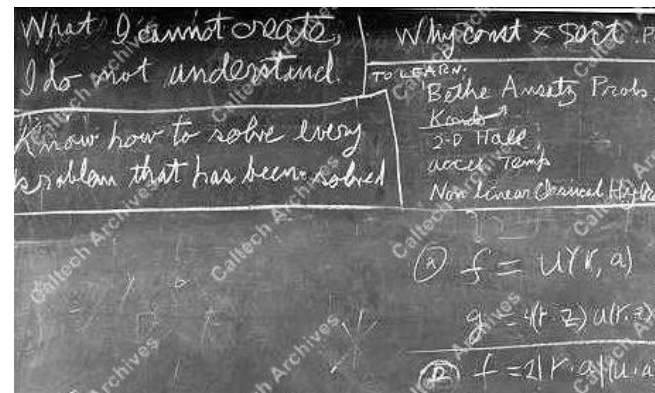 What I cannot create,
I do not understand.
Know how to solve every
problem that has been solved
Why const × sort . P
TO LEARN:
Bethe Ansatz Probs.
Kondo
2-D Hall
accel. Temp
Non Linear Classical Hydro
f = u(r, a)
g = 4(r·z) u(r·z)
f = 2|r·a|(u·a
Caltech Archives